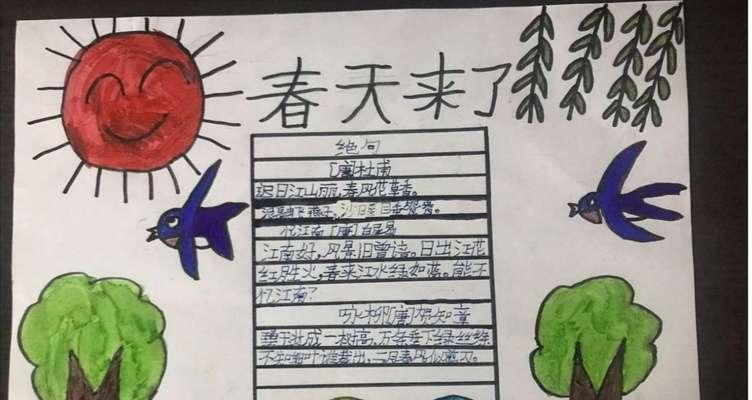 春天来了
绝句
[唐]杜甫
迟日江山丽,春风花草香。
燕子,沙
忆江南[唐]白居易
江南好,风景旧曾谙。日出江花
红胜火,春来江水绿如蓝。能不
忆江南?
咏柳[唐]贺知章
碧玉妆成一树高,万条垂下绿丝绦
不知细叶谁裁出,二月春风似剪刀。